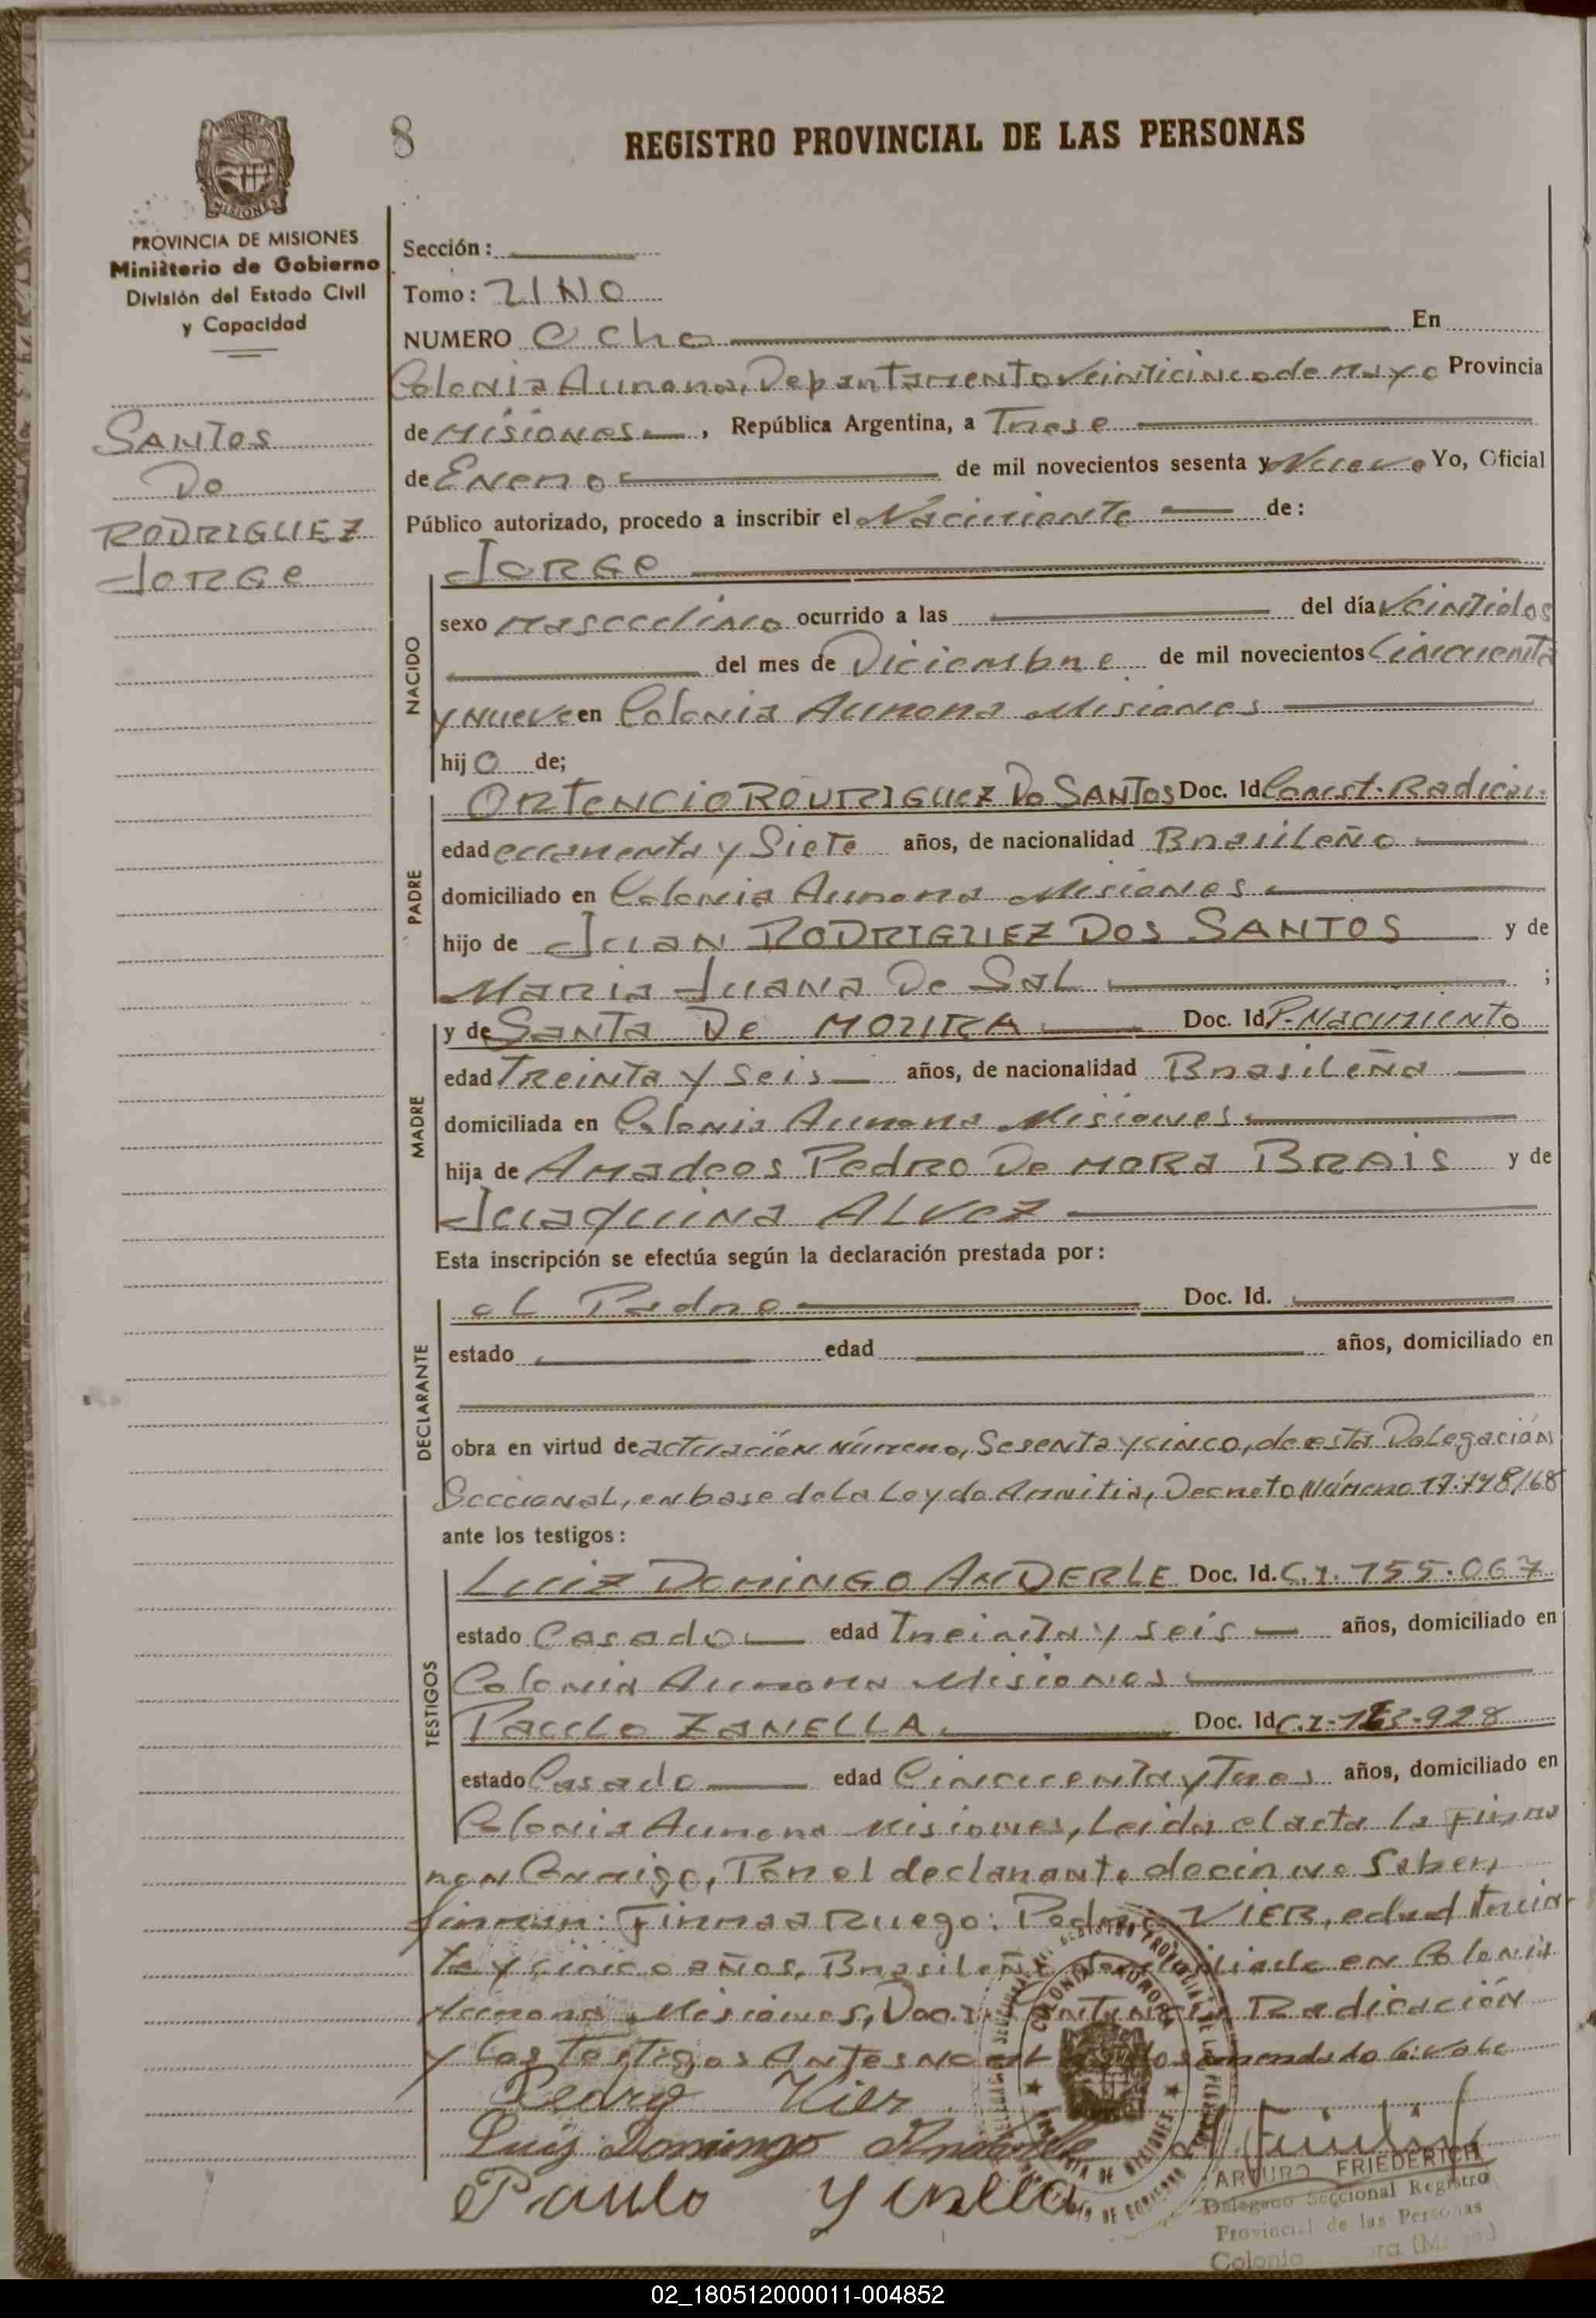 8
REGISTRO PROVINCIAL DE LAS PERSONAS
MISIONES
PROVINCIA DE MISIONES
Ministerio de Gobierno
División del Estado Civil
y Capacidad
SANTOS
DO
RODRIGUEZ
JORGE
Sección:
Tomo: UNO
NUMERO Ocho En
Colonia Aurora, Departamento Veinticinco de Mayo Provincia
de Misiones, República Argentina, a Trese
de Enero de mil novecientos sesenta y Nueve Yo, Oficial
Público autorizado, procedo a inscribir el Nacimiento de:
JORGE
NACIDO
sexo masculino ocurrido a las del día Veintidos
del mes de Diciembre de mil novecientos Cincuenta
y nueve en Colonia Aurora Misiones
hijo de;
PADRE
ORTENCIO RODRIGUEZ Do SANTOS Doc. Id Const. Radicac.
edad cuarenta y Siete años, de nacionalidad Brasileño
domiciliado en Colonia Aurora Misiones
hijo de Juan RODRIGUEZ DOS SANTOS y de
Maria Juana De Sal ;
MADRE
y de SANTA De MOURA Doc. Id P. Nacimiento
edad Treinta y seis años, de nacionalidad Brasileña
domiciliada en Colonia Aurora Misiones
hija de Amadeos Pedro De MORA BRAIS y de
Juaquina ALVEZ
Esta inscripción se efectúa según la declaración prestada por:
DECLARANTE
el Padre Doc. Id.
estado edad años, domiciliado en
obra en virtud de actuación número, Sesenta y cinco, de esta Delegación
Seccional, en base de la Ley de Amnitia, Decreto Número 17.798/68
ante los testigos:
TESTIGOS
Luiz DOMINGO ANDERLE Doc. Id. C.I. 155.067
estado Casado edad Treinta y seis años, domiciliado en
Colonia Aurora Misiones
Paulo ZANELLA Doc. Id C.I-163-928
estado Casado edad Cincuenta y Tres años, domiciliado en
Colonia Aurora Misiones, Leida el acta la Firma
ron Conmigo, Por el declarante decir no Saber
firmar: Firma a Ruego: Pedro VIER, edad trein
ta y cinco años, Brasileño domiciliado en Colonia
Aurora Misiones, Doc. Radicación
y los Testigos Antes enmendado 6: vale
Pedro Vier
Luiz Domingo Anderle
Paulo Zanella
COLONIA AURORA
ARTURO FRIEDERICH
Delegado Seccional Registro
Provincial de las Personas
Colonia
02_180512000011-004852